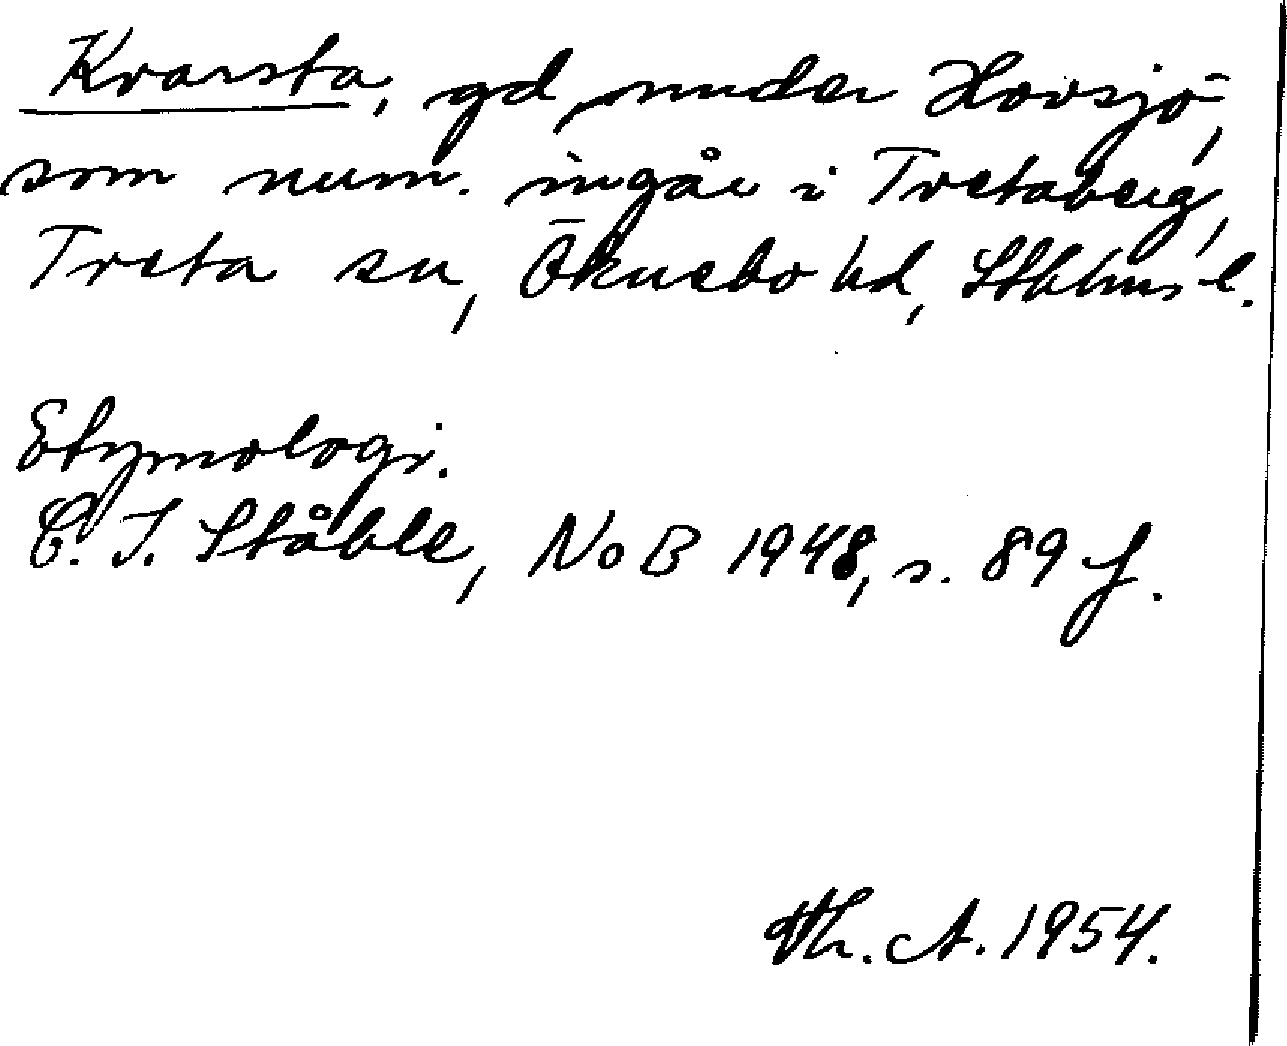 Kvarsta, gd, under Hovsjö,
som num. ingår i Tvetaberg,
Tveta sn, Öknebo hd, Sthlms l.
Etymologi.
C. I. Ståhle, NoB 1948, s. 89 f.
Th. A. 1954.